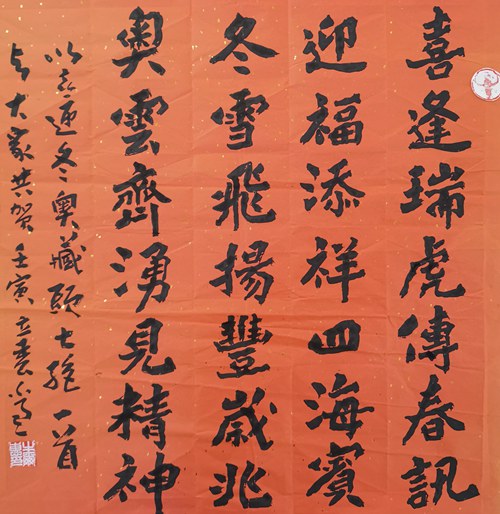 喜逢瑞虎傳春訊
迎福添祥四海賓
冬雪飛揚豐歲兆
奧雲齊湧見精神
以喜迎冬奧藏頭七絕一首
與大家共賀壬寅立春